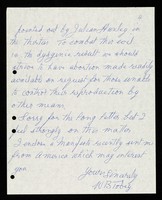 pointed out by Julian Huxley in
the Theatre. To combat this evil
in the dysgenic I should
strive to have abortion made readily
available on request for those unable
to control their reproduction by
other means.
Sorry for the long letter but I
feel strongly on this matter.
I enclose a transfixed recently sent me
from America which may interest
you.
Yours sincerely